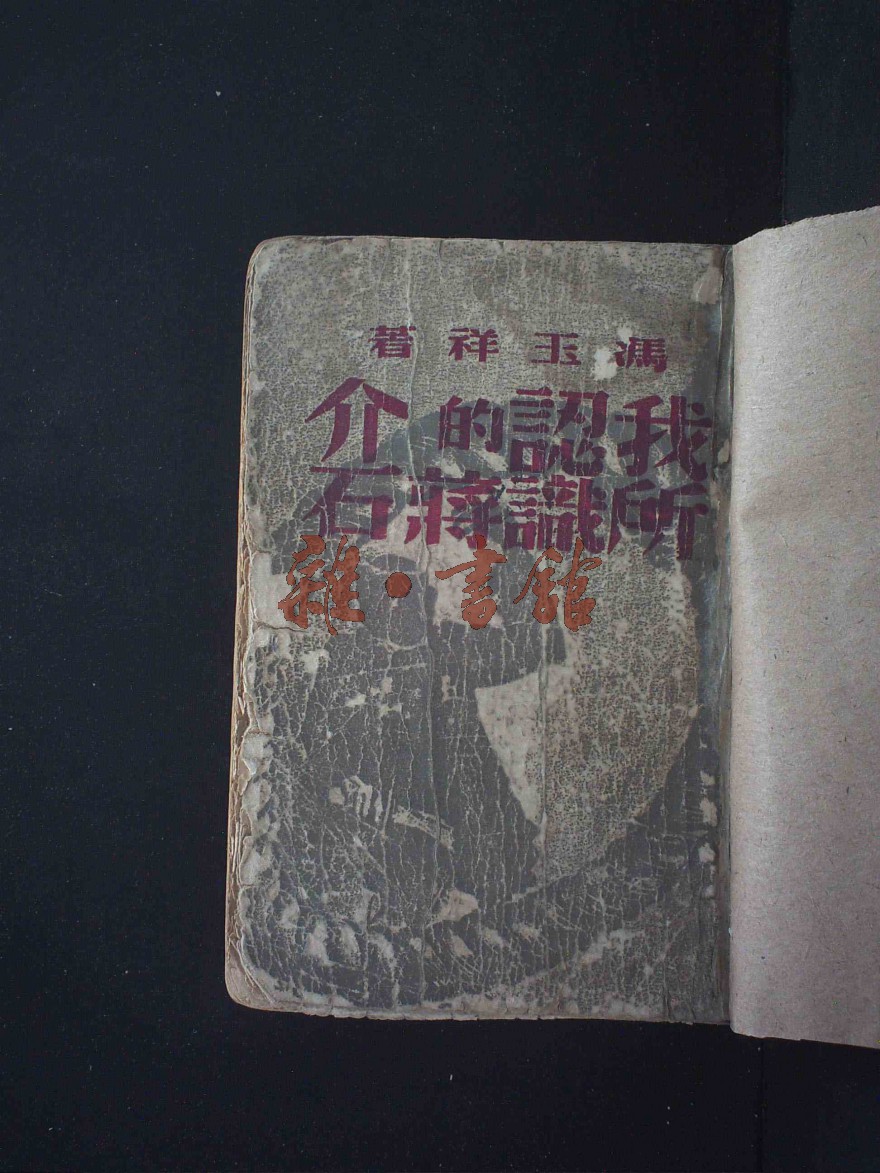 馮玉祥著
我所認識的蔣介石
雜·書館